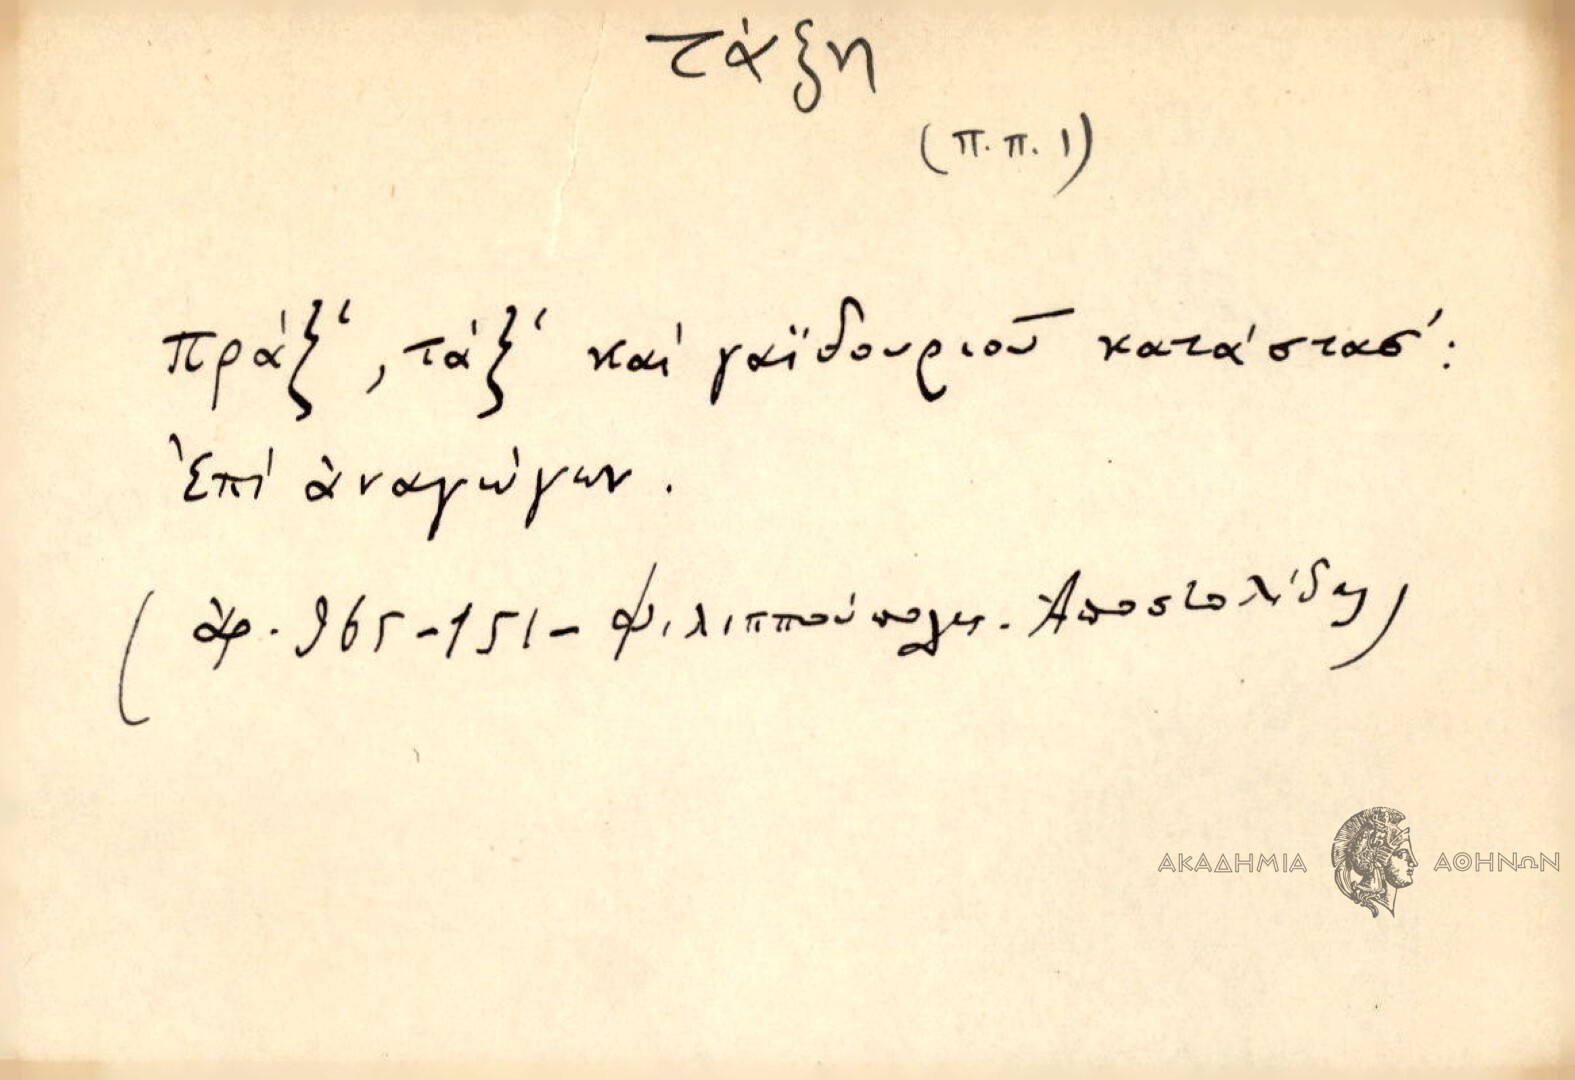 τάξη
(π.π. 1)
πράξ', τάξ' καί γαϊδουριοῦ κατάστασ':
Ἐπί ἀναγώγων.
(ἀρ. 965-151- Φιλιππούπολις. Ἀποστολίδης)
ΑΚΑΔΗΜΙΑ ΑΘΗΝΩΝ